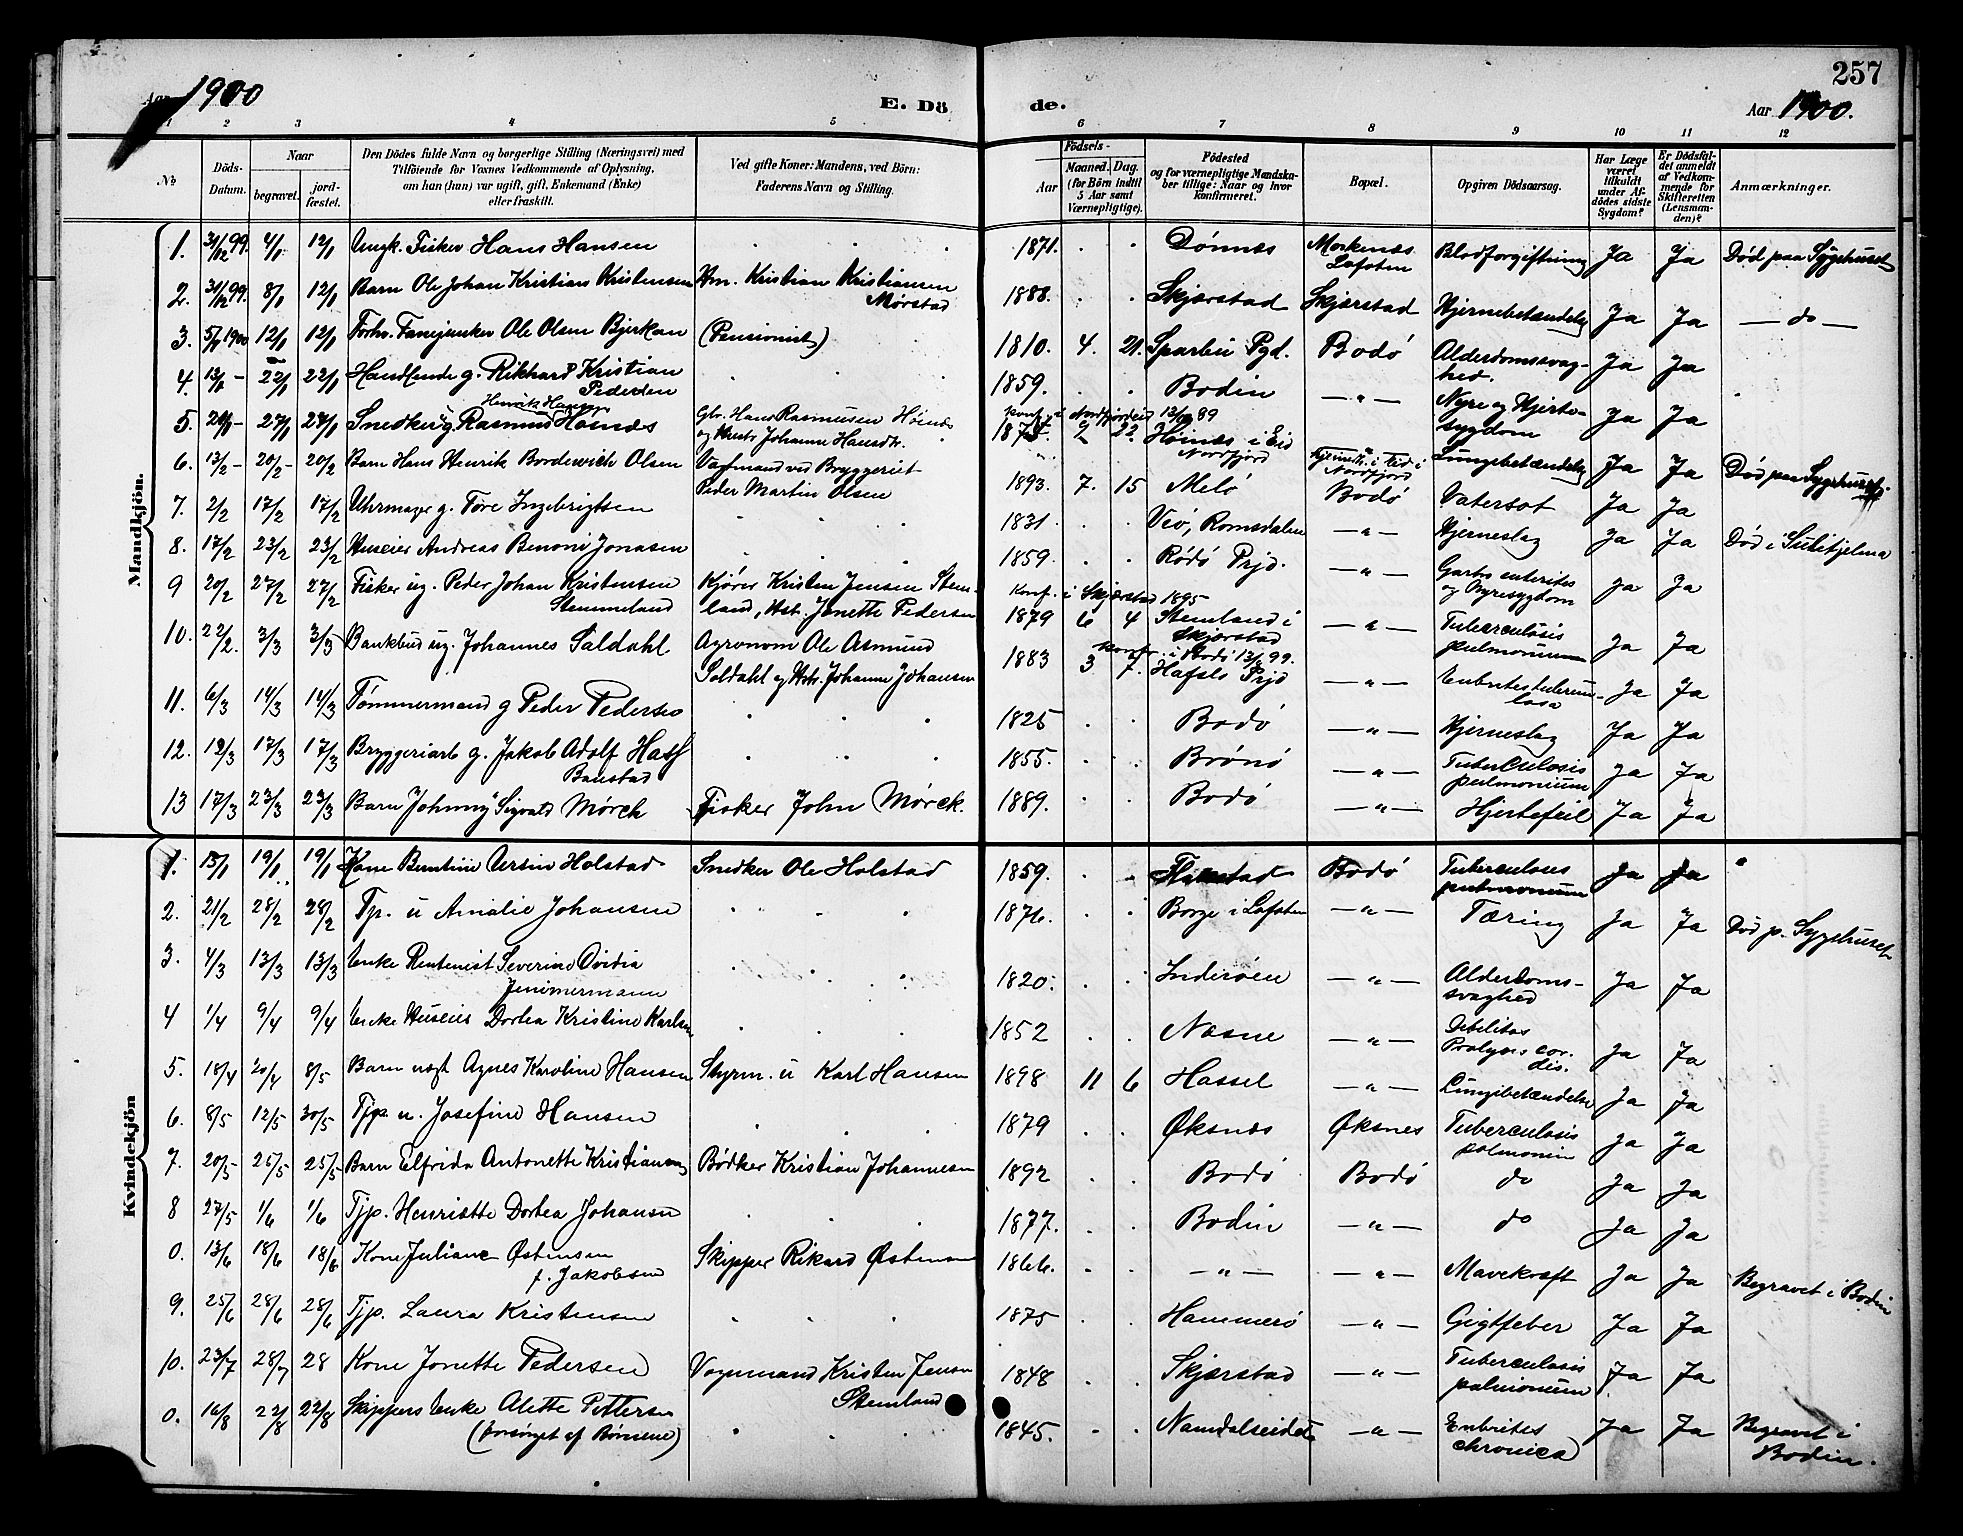 257
Aar 1900
E. Dö de.
Aar 1900.
1 2 3 4 5 6 7 8 9 10 11 12
№
Döds-Datum.
Naar
begravet.
jord-fæstet.
Den Dödes fulde Navn og borgerlige Stilling (Næringsvei) med
Tilföiende for Voxnes Vedkommende af Oplysning,
om han (hun) var ugift, gift, Enkemand (Enke)
eller fraskilt.
Ved gifte Koner: Mandens, ved Börn:
Faderens Navn og Stilling.
Födsels-
Aar
Maaned. Dag.
(for Börn indtil
5 Aar samt
Værnepligtige).
Födested
og for værnepligtige Mandska-
ber tillige: Naar og hvor
konfirmeret.
Bopæl.
Opgiven Dödsaarsag.
Har Læge
været
tilkaldt
under Af-
dödes sidste
Sygdom?
Er Dödsfal-
det anmeldt
af Vedkom-
mende for
Skifteretten
(Lensman-
den)?
Anmærkninger.
Mandkjön.
1. 31/12 99. 4/1 12/1 Ungk. Fisker Hans Hansen 1871. Dønnæs Moskenæs Lofoten Blodforgiftning Ja Ja Død paa Sygehuset
2. 31/12 99. 8/1 12/1 Barn Ole Johan Kristians Kristensen Hm. Kristian Kristiansen Mørstad 1888. Skjærstad Skjærstad Hjernebetændelse Ja Ja — do —
3. 5/1 1900 12/1 12/1 Forhv. Fanejunker Ole Olsen Bjerkan (Pensionist) 1810. 4. 21. Sparbu Pgd. Bodø Alderdomssvag-
hed. Ja Ja
4. 13/1 - 22/1 22/1 Handlende g. Rikhard Kristian Pedersen 1859. Bodin — " — Nyre og Hjerte-
sygdom Ja Ja
5. 20/1 - 27/1 27/1 Snedker ug. Rasmus Henrik Hansen Høinæs Gbr. Hans Rasmusen Høinæs
og Hustr. Johanne Hansdtr. Konf. i Nordfjordeid 13/10 89
1875. 2 22. Høinæs i Eid
Nordfjord Eid i
Nordfjord Lungebetændelse Ja Ja Død paa Sygehuset
6. 13/2 - 20/2 - 20/2 Barn Hans Henrik Bordewich Olsen Vagtmand ved Bryggeriet
Peder Martin Olsen 1893. 7. 15 Melø Bodø Vatersot Ja Ja
7. 2/2 17/2 17/2 Uhrmager g. Tore Ingebrigtsen 1831. Veø, Romsdalen — " — Hjerneslag Ja Ja Død i Sulitjelma
8. 17/2 23/2 23/2 Huseier Andreas Benoni Jonasen 1859. Rødø Prjd. — " — Gastro enterites
og Nyresygdom Ja Ja
9 20/2 27/2 27/2 Fisker ug. Peder Johan Kristensen
Stemmeland Kjører Kristen Jensen Stem-
land, Hst. Jonette Pedersen Konf. i Skjærstad 1895
1879 6 4 Stemland i
Skjærstad — " — Tuberculosis
pulmonum Ja Ja
10. 22/2. 3/3 3/3 Bankbud ug. Johannes Saldahl Agronom Ole Asmund
Soldahl og Hstr. Johanne Johansen Konf. i Bodø 13/ 99.
1883 3 7. Hafslo Prjd — " — Enterites tubercu-
losa Ja Ja
11. 6/3 14/3 14/3 Tømmermand g Peder Pedersen 1825 Bodø — " — Hjerneslag Ja Ja
12. 12/3 17/3 17/3 Bryggeriarb g. Jakob Adolf Hass
Baustad 1855. Brønø — " — Tuberculosis
pulmonium Ja Ja
13 17/3 23/3 23/3 Barn "Johnny" Sigvald Mørck Fisker John Mørck. 1889. Bodø — " — Hjertefeil Ja Ja
Kvindekjön
1. 15/1 19/1 19/1 Kone Berntine Holstad Snedker Ole Holstad 1859. Bodø Tuberculosis
pulmonium Ja Ja
2. 21/2 28/2 28/2 Tp. u Amalie Johansen 1876. Borge i Lofoten — " — Tæring Ja Ja Død p. Sygehuset
3. 4/3 13/3 13/3 Enke Rentenist Severine Ovidia
Jenimermann 1820. Inderøen — " — Alderdoms-
svaghed Ja Ja
4 1/4 9/4 9/4 Enke Huseier Dortea Kristine Karlsen 1852 Næsne — " — Debilitas
cor-
dis. Ja Ja
5. 18/4 20/4 8/5 Barn uægt Agnes Karoline Hansen Styrm. u Karl Hansen 1898 11 6 Hassel — " — Lungebetændelse Ja Ja
6. 8/5 12/5 30/5 Tjp. u. Josefine Hansen 1879 Øksnæs Øksnes Tuberculosis
polmonin Ja Ja
7. 20/5 - 25/5 25/5 Barn Elfrida Antonette Kristiansen Bødker Kristian Johannesen 1892 Bodø Bodø do Ja Ja
8 27/5 1/6 1/6 Tjp. Henriette Dortea Johansen 1877. Bodin — " — do Ja Ja
0. 13/6 18/6 18/6 Kone Juliane Østensen
f. Jakobsen Skipper Rikard Østensen 1866. — " — — " — Mavekræft Ja Ja Begravet i Bodin
9. 25/6 28/6 28/6 Tjp. Laura Kristensen 1875 Hammerø — " — Gigtfeber Ja Ja
10. 23/7 28/7 28 Kone Jonette Pedersen Vognmand Kristen Jensen
Stemland 1848 Skjærstad — " — Tuberculosis
polmonum Ja Ja
0. 16/8 22/8 22/8 Skippers Enke Alette Pettersen
(forsørget af Børnene) 1845. Namdalseidet — " — Enbrites
chronica Ja Ja Begravet i
Bodin.